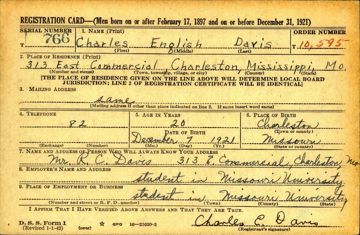 REGISTRATION CARD—(Men born on or after February 17, 1897 and on or before December 31, 1921)
SERIAL NUMBER 1. NAME (Print) ORDER NUMBER
T 766 Charles English Davis T 10,595
(First) (Middle) (Last)
2. PLACE OF RESIDENCE (Print)
313 East Commercial Charleston, Mississippi, Mo.
(Number and street) (Town, township, village, or city) (County) (State)
[THE PLACE OF RESIDENCE GIVEN ON THE LINE ABOVE WILL DETERMINE LOCAL BOARD
JURISDICTION; LINE 2 OF REGISTRATION CERTIFICATE WILL BE IDENTICAL]
3. MAILING ADDRESS
Same
[Mailing address if other than place indicated on line 2. If same insert word same]
4. TELEPHONE 5. AGE IN YEARS 6. PLACE OF BIRTH
82 20 Charleston
DATE OF BIRTH (Town or county)
December 7 1921 Missouri
(Mo.) (Day) (Yr.) (State or country)
7. NAME AND ADDRESS OF PERSON WHO WILL ALWAYS KNOW YOUR ADDRESS
Mr. R. C. Davis 313 E. Commercial, Charleston, Mo
8. EMPLOYER'S NAME AND ADDRESS
student in Missouri University
9. PLACE OF EMPLOYMENT OR BUSINESS
student in Missouri University
(Number and street or R. F. D. number) (Town) (County) (State)
I AFFIRM THAT I HAVE VERIFIED ABOVE ANSWERS AND THAT THEY ARE TRUE.
D. S. S. Form 1
(Revised 1-1-42) (over) 16-21630-2 Charles E. Davis